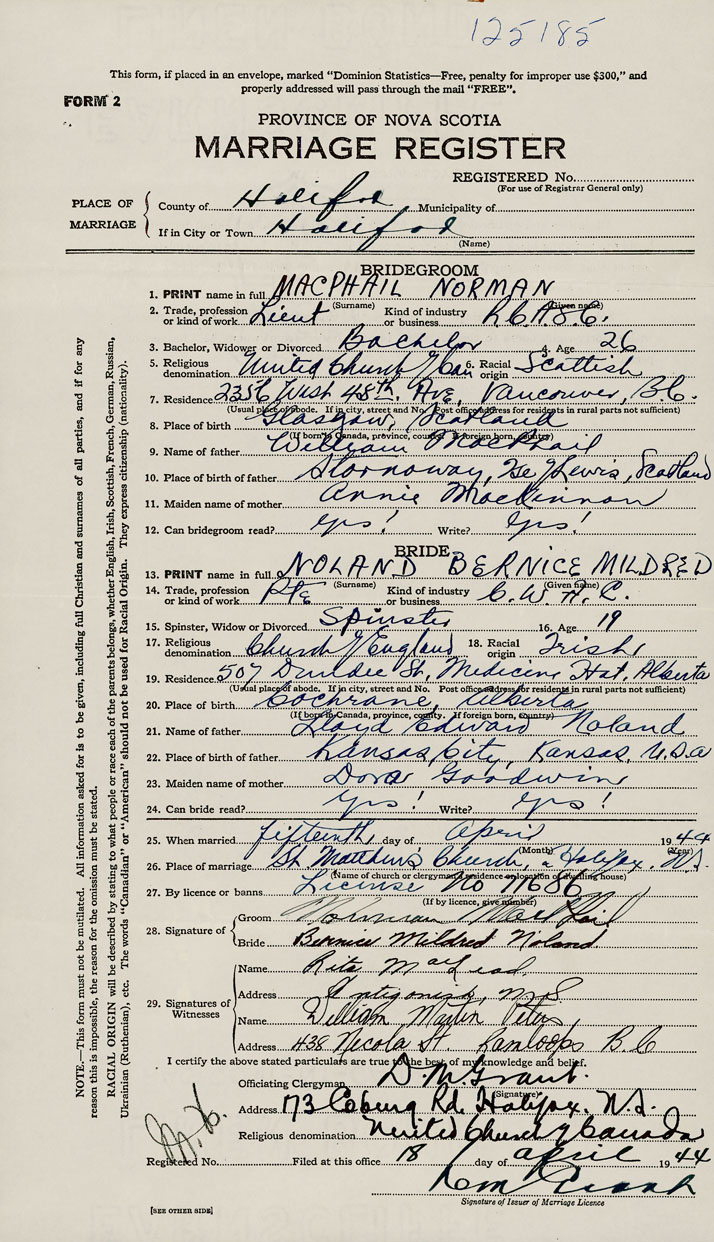 125185
This form, if placed in an envelope, marked "Dominion Statistics—Free, penalty for improper use $300," and
properly addressed will pass through the mail "FREE".
FORM 2
PROVINCE OF NOVA SCOTIA
MARRIAGE REGISTER
REGISTERED No.
(For use of Registrar General only)
PLACE OF MARRIAGE
County of Halifax Municipality of
If in City or Town Halifax
(Name)
BRIDEGROOM
1. PRINT name in full MACPHAIL NORMAN
(Surname) (Given name)
2. Trade, profession or kind of work Lieut Kind of industry or business R.C.A.S.C.
3. Bachelor, Widower or Divorced Bachelor 4. Age 26
5. Religious denomination United Church of Can 6. Racial origin Scottish
7. Residence 2356 West 48th Ave, Vancouver, B.C.
(Usual place of abode. If in city, street and No. Post office address for residents in rural parts not sufficient)
8. Place of birth Glasgow, Scotland
(If born in Canada, province, county. If foreign born, country)
9. Name of father William MacPhail
10. Place of birth of father Stornoway, Is of Lewis, Scotland
11. Maiden name of mother Annie MacKinnon
12. Can bridegroom read? Yes! Write? Yes!
BRIDE
13. PRINT name in full NOLAND BERNICE MILDRED
(Surname) (Given name)
14. Trade, profession or kind of work Pte Kind of industry or business C.W.A.C.
15. Spinster, Widow or Divorced Spinster 16. Age 19
17. Religious denomination Church of England 18. Racial origin Irish
19. Residence 507 Dundee St, Medicine Hat, Alberta
(Usual place of abode. If in city, street and No. Post office address for residents in rural parts not sufficient)
20. Place of birth Cochrane, Alberta
(If born in Canada, province, county. If foreign born, country)
21. Name of father Lloyd Edward Noland
22. Place of birth of father Kansas City, Kansas, U.S.A
23. Maiden name of mother Dora Goodwin
24. Can bride read? Yes! Write? Yes!
25. When married fifteenth day of April 1944
(Month) (Year)
26. Place of marriage St. Matthew's Church, Halifax, N.S.
(Name of church or clergyman's residence or location of dwelling house)
27. By licence or banns License No 71686
(If by licence, give number)
28. Signature of
Groom Norman MacPhail
Bride Bernice Mildred Noland
29. Signatures of Witnesses
Name Rita MacLeod
Address Antigonish, N.S
Name William Martin Peters
Address 438 Nicola St. Kamloops B.C
I certify the above stated particulars are true to the best of my knowledge and belief.
Officiating Clergyman D. M. Grant.
(Signature)
Address 73 Coburg Rd, Halifax, N.S.
Religious denomination United Church of Canada
Registered No. Filed at this office 18 day of April 1944
Signature of Issuer of Marriage Licence
[SEE OTHER SIDE]
NOTE.—This form must not be mutilated. All information asked for is to be given, including full Christian and surnames of all parties, and if for any
reason this is impossible, the reason for the omission must be stated.
RACIAL ORIGIN will be described by stating to what people or race each of the parents belongs, whether English, Irish, Scottish, French, German, Russian,
Ukrainian (Ruthenian), etc. The words "Canadian" or "American" should not be used for Racial Origin. They express citizenship (nationality).